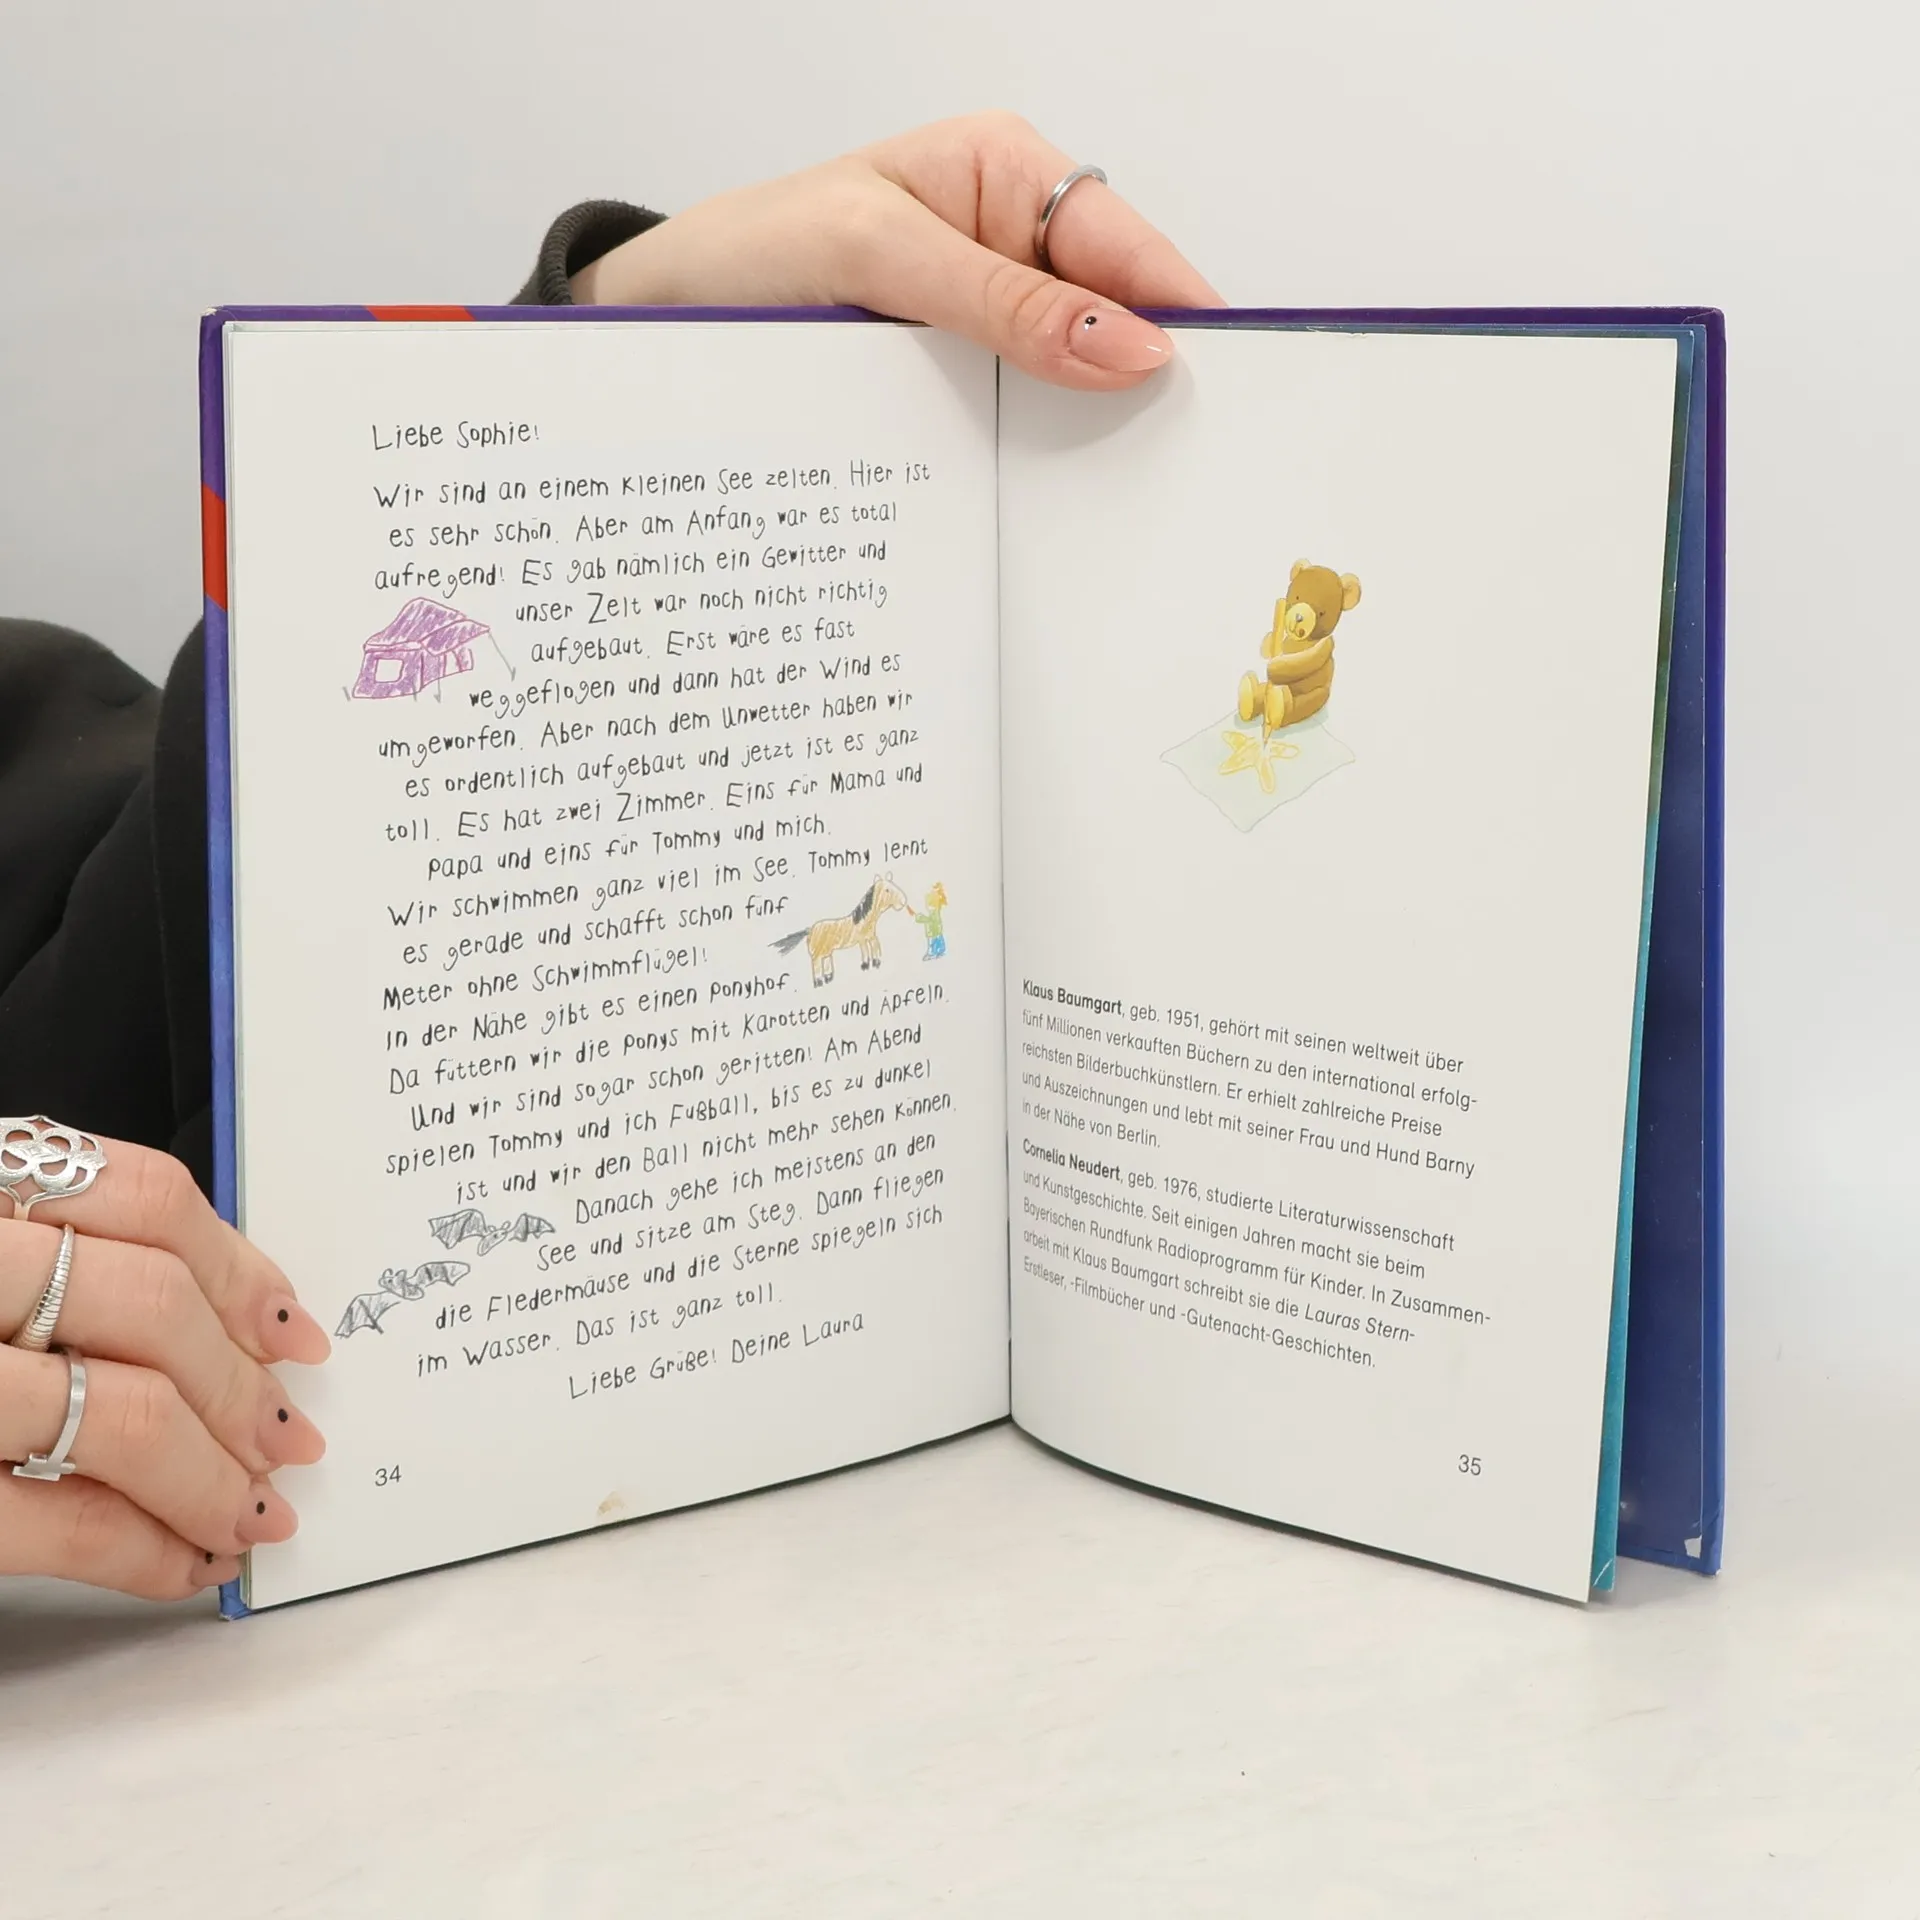 Liebe Sophie!
Wir sind an einem kleinen See zelten. Hier ist
es sehr schön. Aber am Anfang war es total
aufregend! Es gab nämlich ein Gewitter und
unser Zelt war noch nicht richtig
aufgebaut. Erst wäre es fast
weggeflogen und dann hat der Wind es
umgeworfen. Aber nach dem Unwetter haben wir
es ordentlich aufgebaut und jetzt ist es ganz
toll. Es hat zwei Zimmer. Eins für Mama und
Papa und eins für Tommy und mich.
Wir schwimmen ganz viel im See. Tommy lernt
es gerade und schafft schon fünf
Meter ohne Schwimmflügel!
In der Nähe gibt es einen Ponyhof.
Da füttern wir die Ponys mit Karotten und Äpfeln.
Und wir sind sogar schon geritten! Am Abend
spielen Tommy und ich Fußball, bis es zu dunkel
ist und wir den Ball nicht mehr sehen können.
Danach gehe ich meistens an den
See und sitze am Steg. Dann fliegen
die Fledermäuse und die Sterne spiegeln sich
im Wasser. Das ist ganz toll.
Liebe Grüße! Deine Laura
34
Klaus Baumgart, geb. 1951, gehört mit seinen weltweit über
fünf Millionen verkauften Büchern zu den international erfolg-
reichsten Bilderbuchkünstlern. Er erhielt zahlreiche Preise
und Auszeichnungen und lebt mit seiner Frau und Hund Barny
in der Nähe von Berlin.
Cornelia Neudert, geb. 1976, studierte Literaturwissenschaft
und Kunstgeschichte. Seit einigen Jahren macht sie beim
Bayerischen Rundfunk Radioprogramm für Kinder. In Zusammen-
arbeit mit Klaus Baumgart schreibt sie die Lauras Stern-
Erstleser, -Filmbücher und -Gutenacht-Geschichten.
35